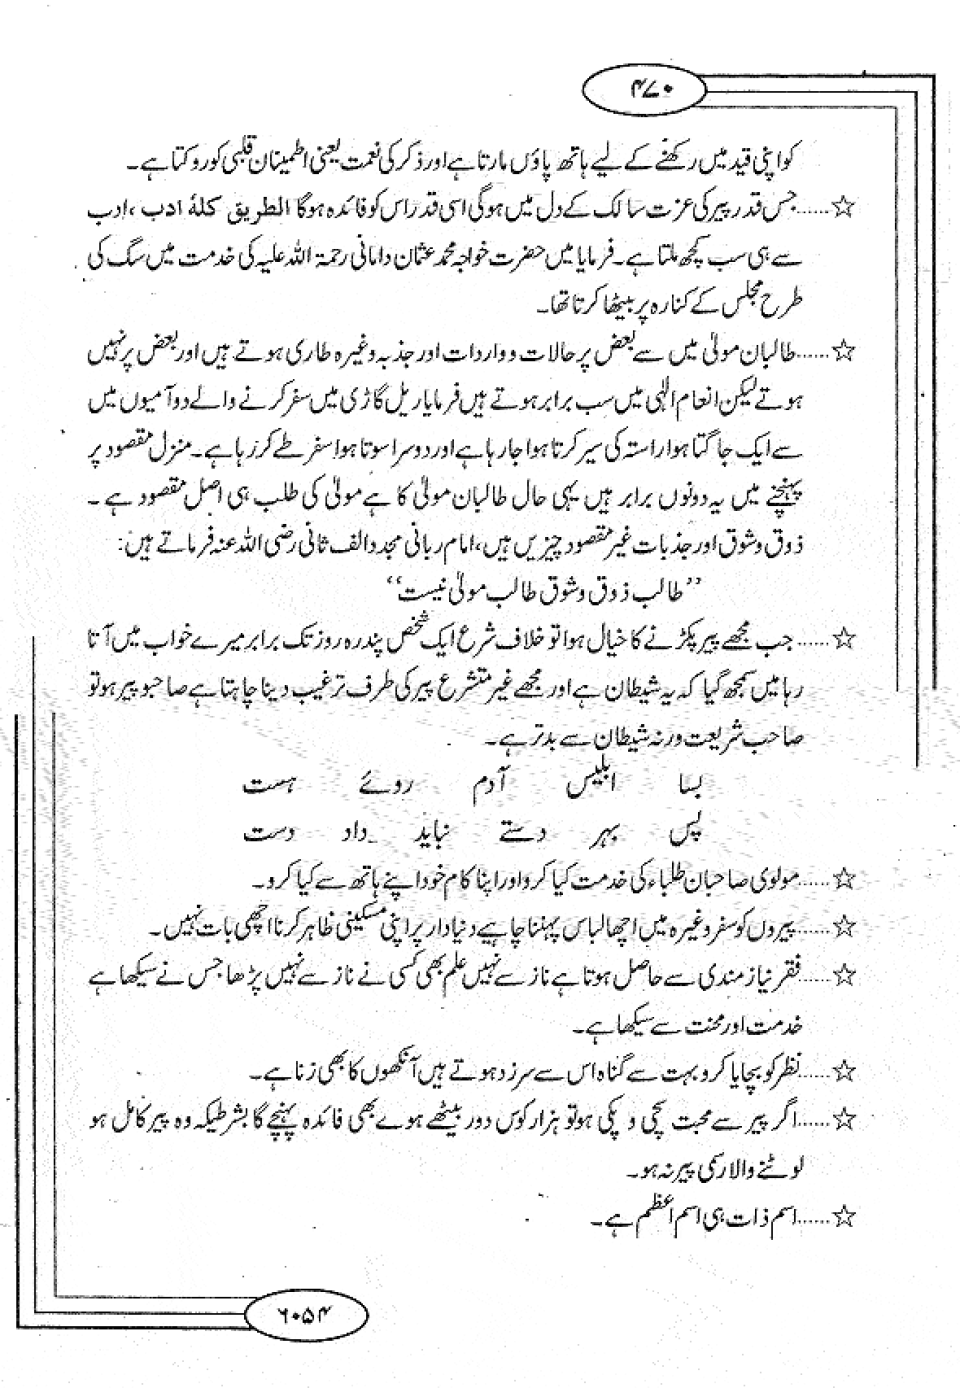 ۴۷۰
کو اپنی قید میں رکھنے کے لیے ہاتھ پاؤں مارتا ہے اور ذکر کی نعمت یعنی اطمینان قلبی کو روکتا ہے۔
☆......جس قدر پیر کی عزت سالک کے دل میں ہوگی اسی قدر اس کو فائدہ ہوگا الطریق کلہٗ ادب ،ادب
سے ہی سب کچھ ملتا ہے۔ فرمایا میں حضرت خواجہ محمد عثمان دامانی رحمۃ اللہ علیہ کی خدمت میں سگ کی
طرح مجلس کے کنارہ پر بیٹھا کرتا تھا۔
☆......طالبان مولیٰ میں سے بعض پر حالات و واردات اور جذبہ وغیرہ طاری ہوتے ہیں اور بعض پر نہیں
ہوتے لیکن انعام الٰہی میں سب برابر ہوتے ہیں فرمایا ریل گاڑی میں سفر کرنے والے دو آمیوں میں
سے ایک جاگتا ہوا راستہ کی سیر کرتا ہوا جا رہا ہے اور دوسرا سوتا ہوا سفر طے کر رہا ہے۔ منزل مقصود پر
پہنچنے میں یہ دونوں برابر ہیں یہی حال طالبان مولیٰ کا ہے مولیٰ کی طلب ہی اصل مقصود ہے ۔
ذوق و شوق اور جذبات غیر مقصود چیزیں ہیں، امام ربانی مجدد الف ثانی رضی اللہ عنہ فرماتے ہیں:
’’طالب ذوق و شوق طالب مولیٰ نیست‘‘
☆......جب مجھے پیر پکڑنے کا خیال ہوا تو خلاف شرع ایک شخص پندرہ روز تک برابر میرے خواب میں آتا
رہا میں سمجھ گیا کہ یہ شیطان ہے اور مجھے غیر متشرع پیر کی طرف ترغیب دینا چاہتا ہے صاحبو پیر ہو تو
صاحب شریعت ورنہ شیطان سے بدتر ہے۔
بسا ابلیس آدم روئے ہست
پس بہر دستے نباید داد دست
☆......مولوی صاحبان طلباء کی خدمت کیا کرو اور اپنا کام خود اپنے ہاتھ سے کیا کرو۔
☆......پیروں کو سفر وغیرہ میں اچھا لباس پہننا چاہیے دنیا دار پر اپنی مسکینی ظاہر کرنا اچھی بات نہیں۔
☆......فقر نیاز مندی سے حاصل ہوتا ہے ناز سے نہیں علم بھی کسی نے ناز سے نہیں پڑھا جس نے سیکھا ہے
خدمت اور محنت سے سیکھا ہے۔
☆......نظر کو بچایا کرو بہت سے گناہ اس سے سرزد ہوتے ہیں آنکھوں کا بھی زنا ہے۔
☆......اگر پیر سے محبت سچی و پکی ہو تو ہزار کوس دور بیٹھے ہوے بھی فائدہ پہنچے گا بشرطیکہ وہ پیر کامل ہو
لوٹنے والا رسمی پیر نہ ہو۔
☆......اسم ذات ہی اسم اعظم ہے۔
۶۰۵۴